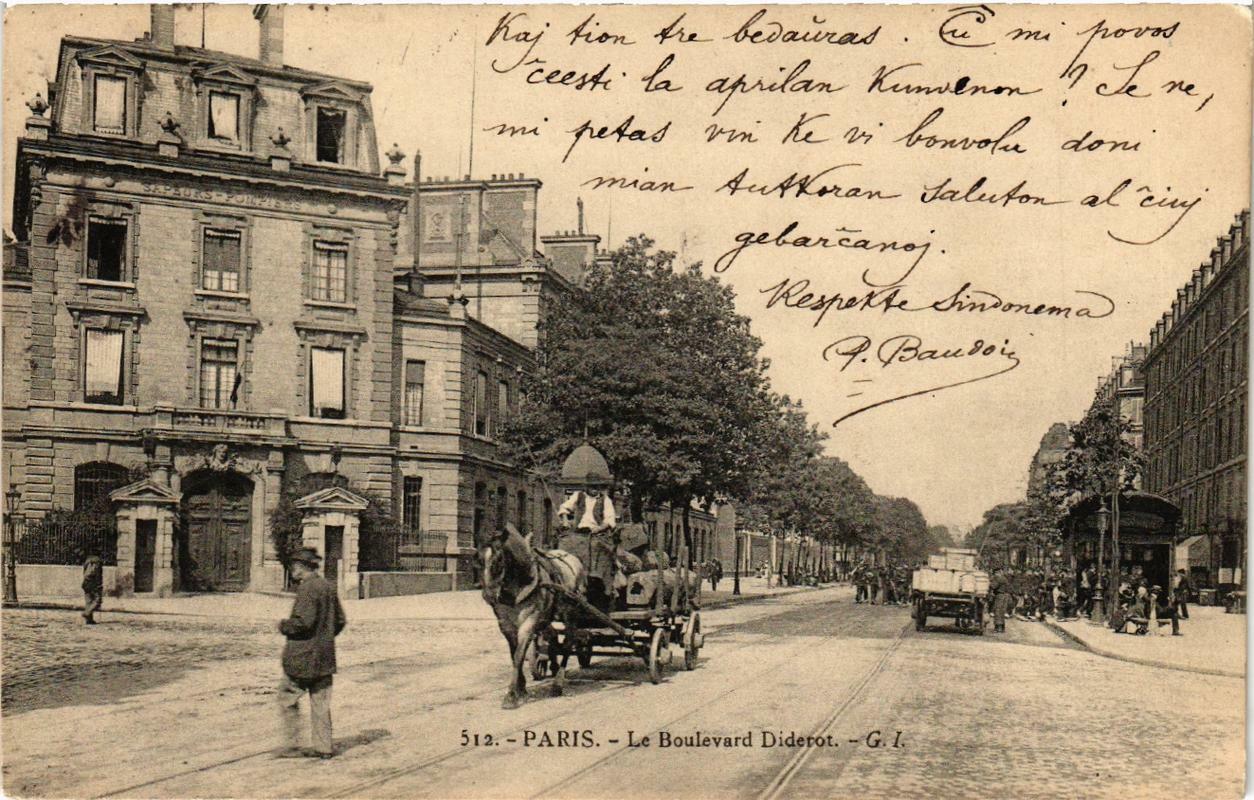 Kaj tion tre bedaŭras. Ĉu mi povos
ĉeesti la aprilan Kunvenon? Se ne,
mi petas vin Ke vi bonvolu doni
mian tutkoran Saluton al ĉiuj
gebarĉanoj.
Respekte Sindonema
P. Baudoin
SAPEURS-POMPIERS
512. - PARIS. - Le Boulevard Diderot. - G. I.